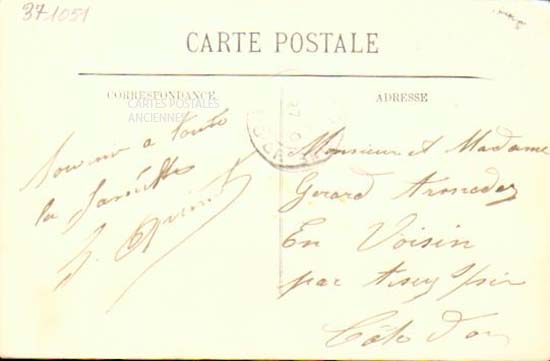 371051
CARTE POSTALE
CORRESPONDANCE
ADRESSE
CARTES POSTALES
ANCIENNES
Souvenir a toute
la famille
Monsieur et Madame
Gerard
En Voisin
par
Côte d'or